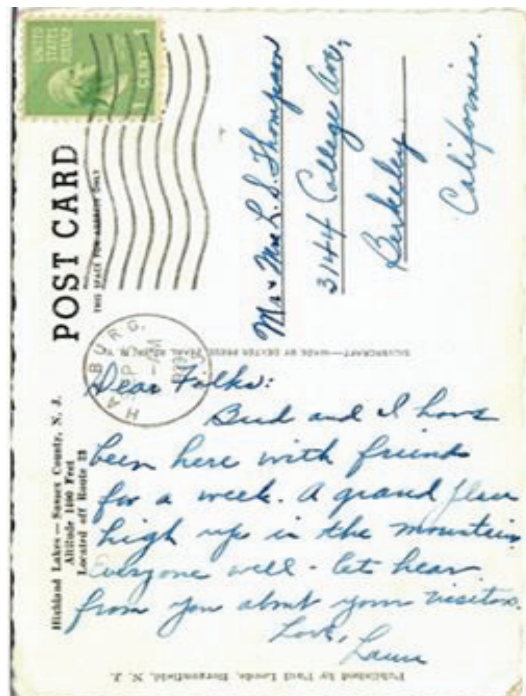 UNITED
STATES
POSTAGE
1 CENT 1
POST CARD
THIS SPACE FOR ADDRESS ONLY
Mr & Mrs L. S. Thompson
3144 College Ave,
Berkeley
California.
SILVERCRAFT—MADE BY DEXTER PRESS, PEARL RIVER, N. Y.
HAMBURG.
SEP 5
Highland Lakes — Sussex County, N. J.
Altitude 1500 Feet
Located off Route 23
Dear Folks:
Bud and I have
been here with friends
for a week. A grand place
high up in the mountains
Everyone well - lets hear
from you about your visitors.
Love,
Published by Paul Leeds, Bergenfield, N. J.